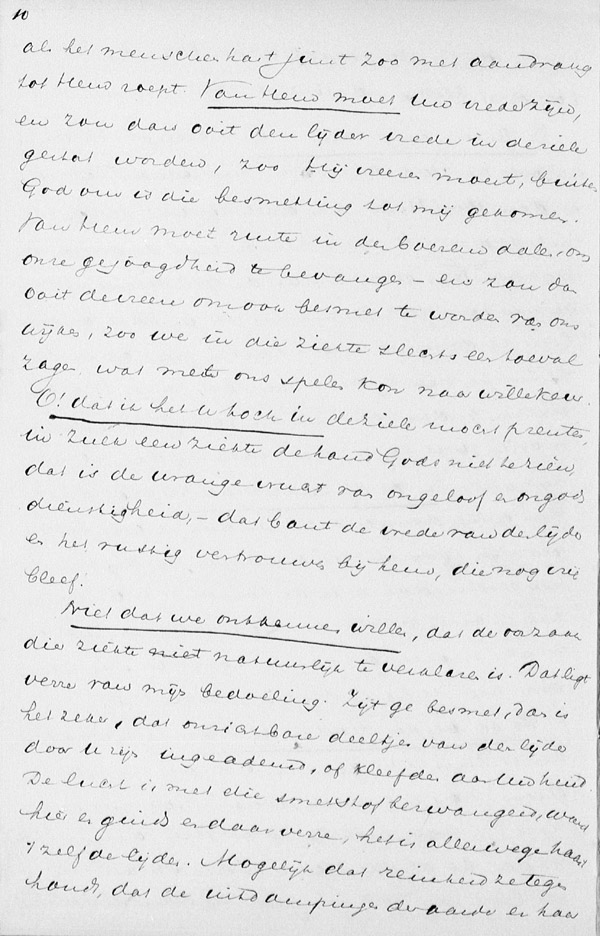 10
als het menschenhart juist zoo met aandrang
tot Hem roept. Van Hem moet Uw vrede zijn,
en zou dan ooit den lijder vrede in de ziele
gestort worden, zoo Hij vreezen moest, buiten
God om is die besmetting tot mij gekomen.
Van Hem moet ruste in den boezem dalen, om
onze gejaagdheid te bevangen – en zou dan
ooit de vrees om ook besmet te worden van ons
wijken, zoo we in die ziekte slechts een toeval
zagen, wat met ons spelen kon naar willekeur.
O! dat ik het U hoch in de ziele mocht prenten,
in zulk een ziekte de hand Gods niet te zien,
dat is de wrange vrucht van ongeloof en ongods
dienstigheid, – dat bant de vrede van de lijder
en het rustig vertrouwen bij hem, die nog vrij
bleef.
Niet dat we ontkennen willen, dat de oorzaak
die ziekte niet natuurlijk te verklaren is. Dat ligt
verre van mijn bedoeling. Zijt ge besmet, dan is
het zeker, dat onzichtbare deeltjes van den lijder
door U zijn ingeademd, of kleefden aan Uw hand.
De lucht is met die smetstof bezwangerd, want
hier en ginds en daar verre, het is allerwege haast
't zelfde lijden. Mogelijk dat reinheid ze tegen
houdt, dat de uitdampingen der aarde en haar